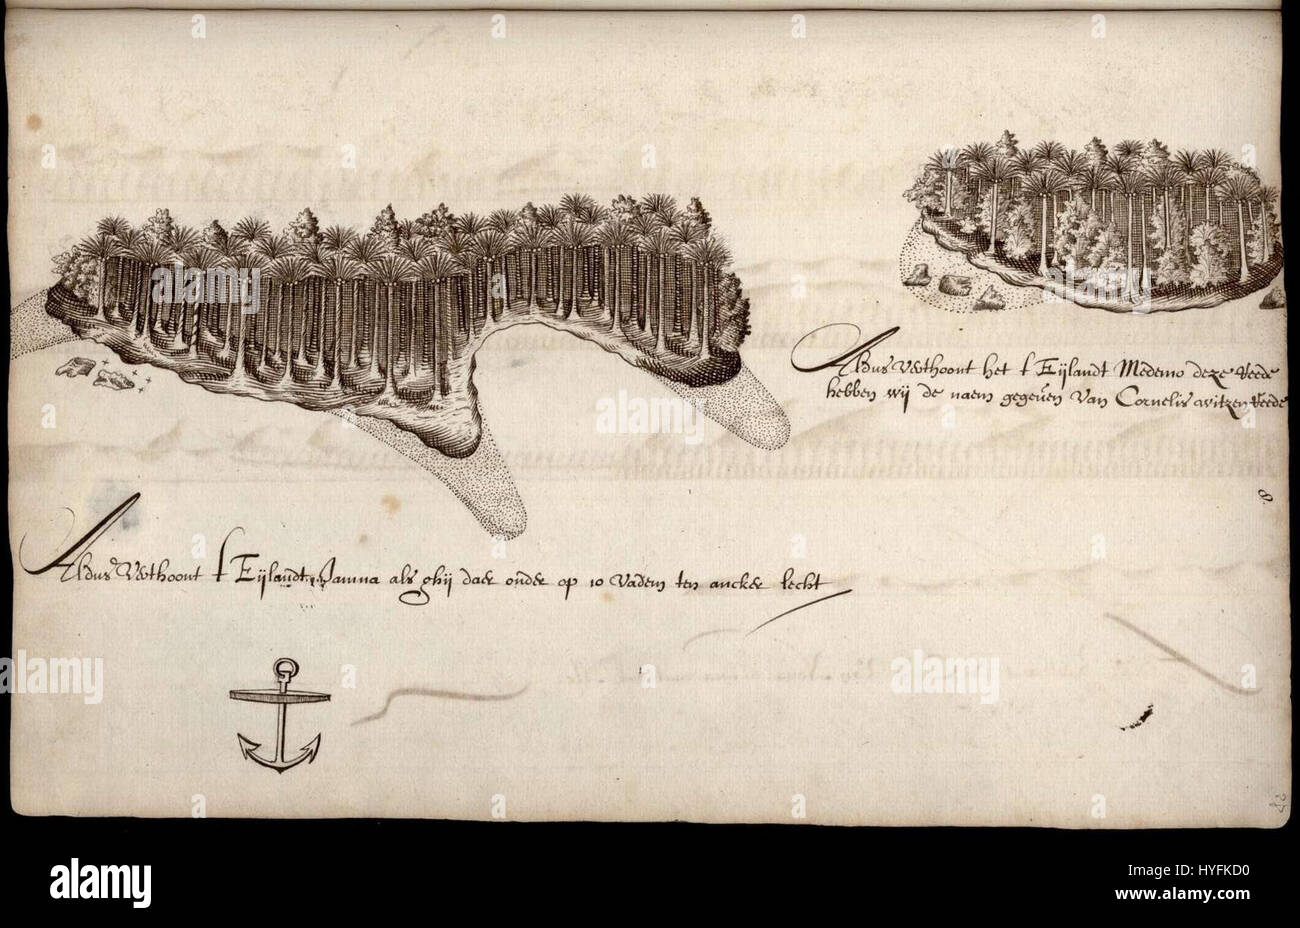 Aldus Verthoont het t Eijlandt Medemo deze Reede
hebben wij de naem gegeven Van Cornelis witzen Reede
8
Aldus Verthoont t Eijlandt Jamna als ghij daer onder op 10 Vadem ten ancker lecht
a alamy stock photo
HYFKD0
www.alamy.com